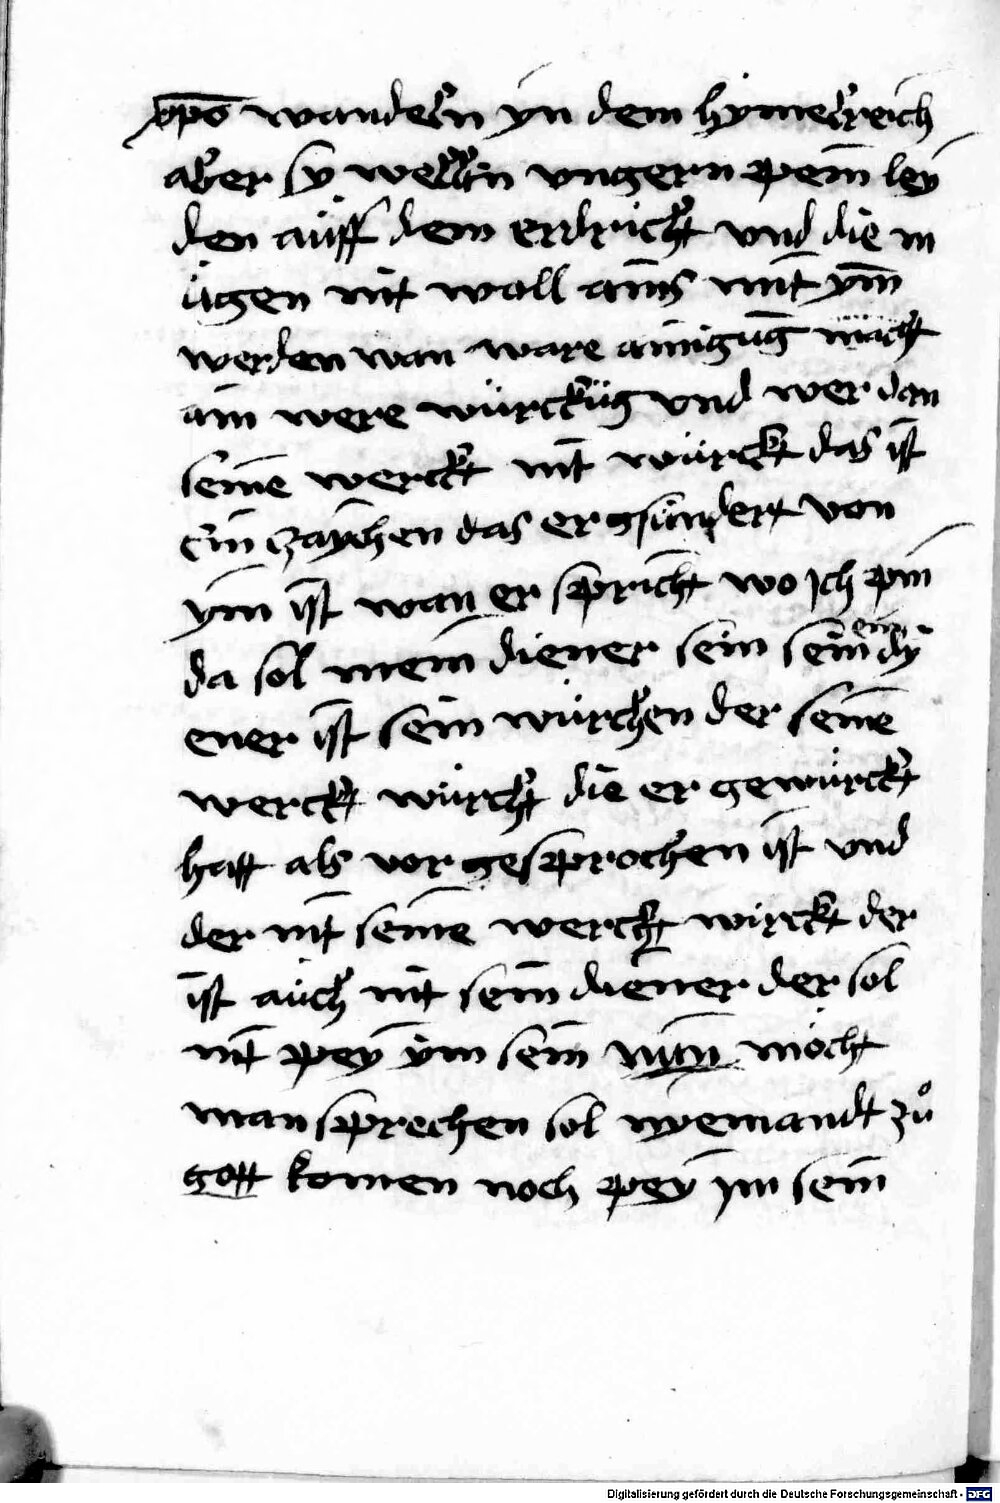 xp̄o wandern yn dem hymelreich
aber sy wellen vngern pein ley
den auff dem erdricht vnd die m
ügen nit woll ains mit ym
werden wan ware ainigūg macht
ain were würckūg vnd wer dan
seine werckt nit würckt das ist
ein zaychen das er gsündert von
ym ist wan er spricht wo ich pin
da sol mein diener sein sein dy
ener ist sein würchen der seine
werckt würcht die er gewürckt
hatt als vor gesprochen ist vnd
der nit seine werckt wirckt der
ist auch nit sein diener der sol
nit pey ym sein nun möcht
man sprechen sol nyemandt zů
gott komen noch pey ym sein
Digitalisierung gefördert durch die Deutsche Forschungsgemeinschaft - DFG